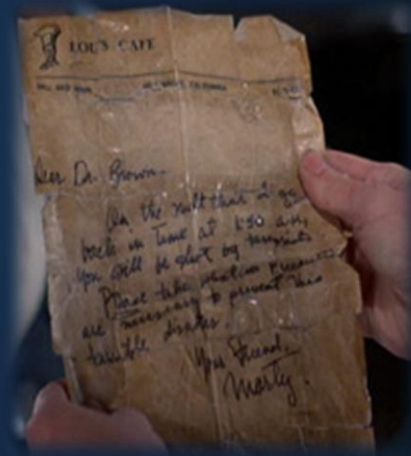 LOU'S CAFE
Dear Dr. Brown,
On the night that I go
back in time at 1:30 a.m.,
you will be shot by terrorists.
Please take whatever precautions
are necessary to prevent this
terrible disaster.
Your friend,
Marty.